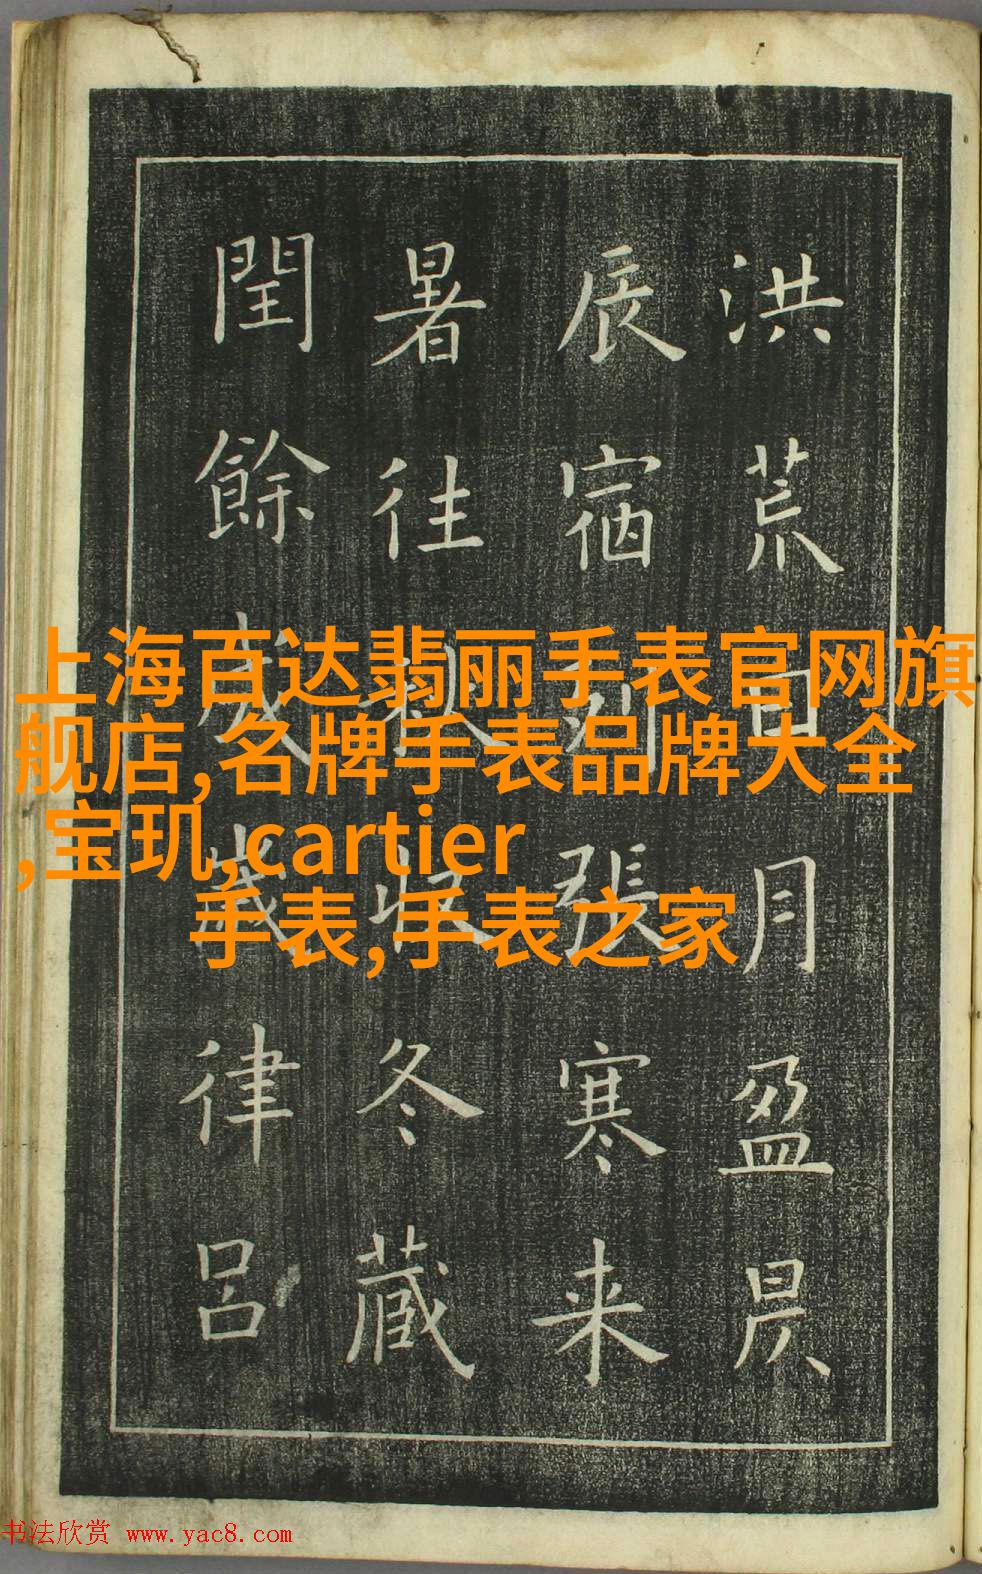 洪荒日月盈昃
辰宿列張寒来
暑往秋收冬藏
閏餘成歲律呂
上海百达翡丽手表官网旗
舰店,名牌手表品牌大全
,宝玑,cartier
手表,手表之家
书法欣赏 www.yac8.com